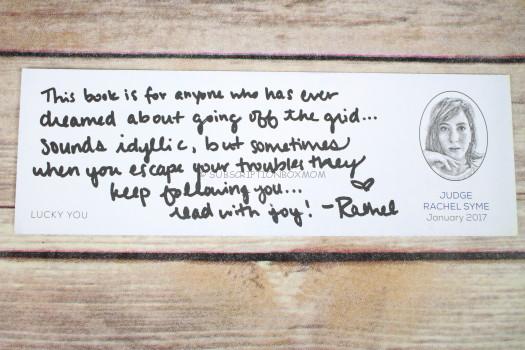 This book is for anyone who has ever
dreamed about going off the grid...
Sounds idyllic, but sometimes
when you escape your troubles they
keep following you...
read with joy! -Rachel
© SUBSCRIPTIONBOXMOM
LUCKY YOU
JUDGE
RACHEL SYME
January 2017